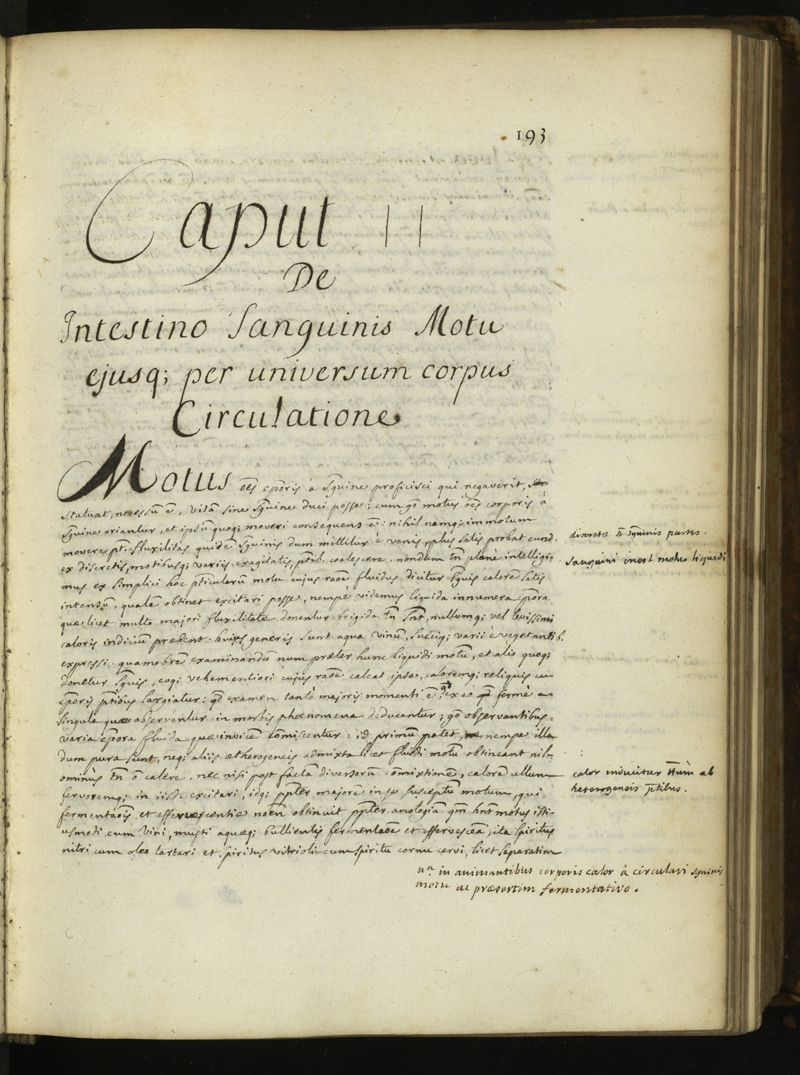 193
Caput II
De
Intestino Sanguinis Motu
ejusq; per universum corpus
Circulatione
Motus oēs cporis à sguine proficisci qui negaverit,
statuat, necessū ē, vitā sine sguine duci posse; cum gō motus oēs corporis à
sguine oriantur, et ipsū quoq; moveri consequens ē: nihil namq; immotum
movere pt. fluxilitas quidē sguinis dum mittitur è venis, plus satis probat eund.
ex discretis, motibusq; variis exagitatis, ptib. coalescere. nondum tn̄ plane intelligi-
mus ex simplici hoc pticularum motu cujus raōe fluidus dicitur sguis calorē satis
intensū, qualē obtinet excitari posse, nempe videmus liquida innumera cpora
quæ licet multo majori fluxilitate donentur frigida tn̄ sn̄t, nullumq; vel levissimi
caloris indicium præbent. hujus generis sunt aqua vinū, succiq; varii è vegetantib.
expressi. quamobrem examinandū num præter hunc liquidi motū, et alio quoq;
donetur sguis, eoq; vehementiori cujus raōe caleat ipse, caloremq; reliquis cu
cporis ptibus largiatur; qd examen tantò majoris momenti ē qō ex eo fermè
singula quæ observantur in morbis phœnomena deducantur; gō observantibus
varia cpora fluida quæ invicē comiscentur: id primū patet, nempe illa
dum pura sunt, neq; aliis ætherogeneis admixta licet fluidi motū obtineant nil-
ominùs tn̄ ō calere, nec nisi post factā diversorū comixtionē, calorē ullum
fervoremq; in iisd. excitari, idq; ppter majorē in se susceptū motum, qui
fermentaōis et effervescentiæ nomen obtinuit ppter analogiā qm hn̄t motus isti-
usmodi cum vini, musti aquæq; bullientis fermentaōe et effervescentia, ita spiritus
nitri cum oleo tartari et spiritus vitrioli cum spiritu cornu cervi, licet separatim
discretæ sguinis partes.
sanguini inest motus liquidi
calor inducitur ab
heterogeneis ptibus.
in animantibus corporis calor à circulari sguinis
motu ac præsertim fermentativo.